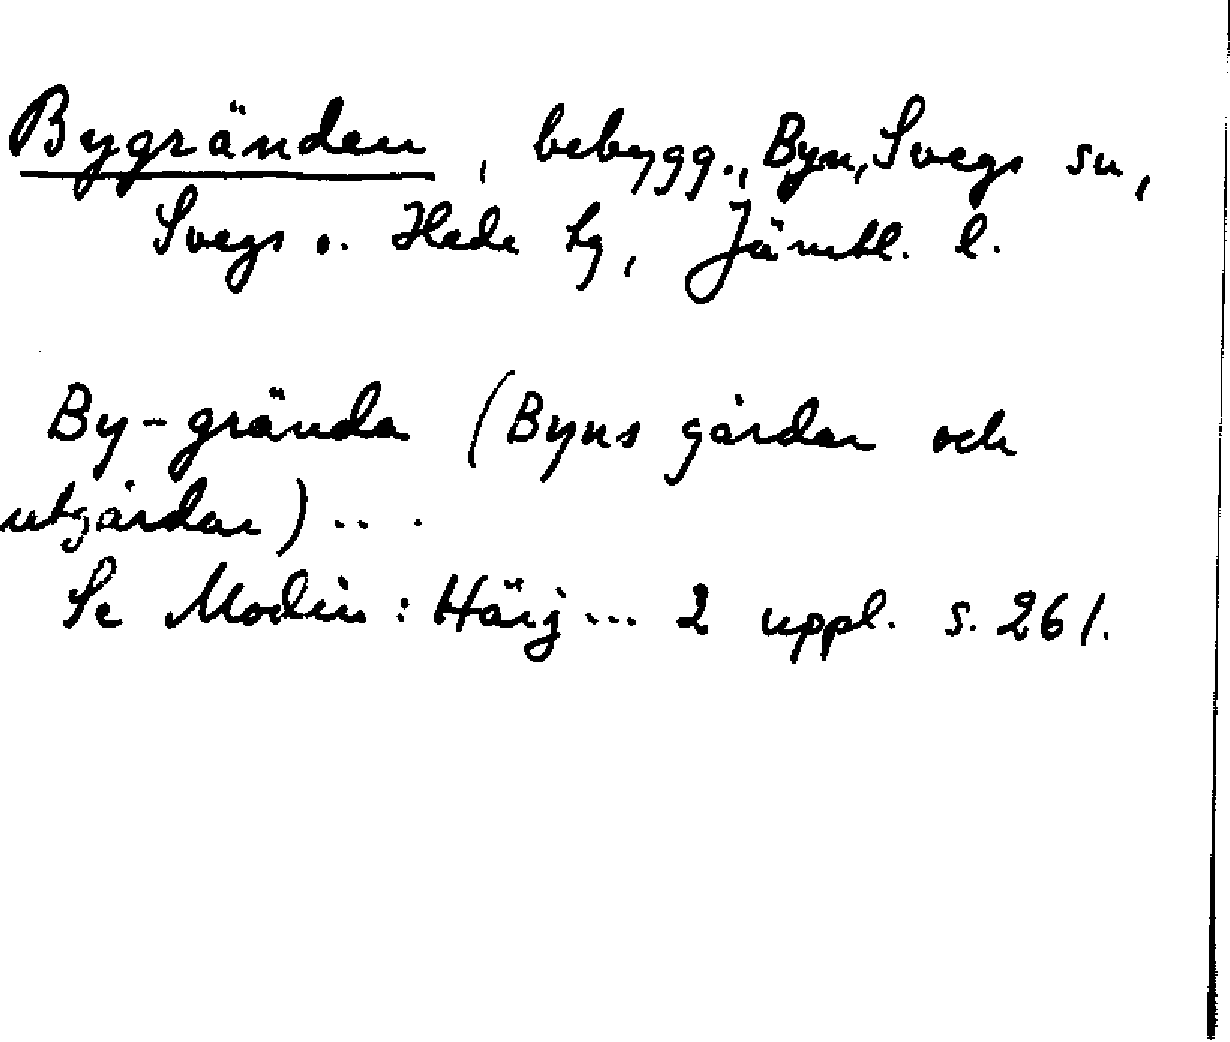 Bygränden, bebygg., Byn, Svegs sn,
Svegs o. Hede tg, Jämtl. l.
By-grända (Byns gårdar och
utgårdar) ...
Se Modin: Härj... 2 uppl. s. 261.